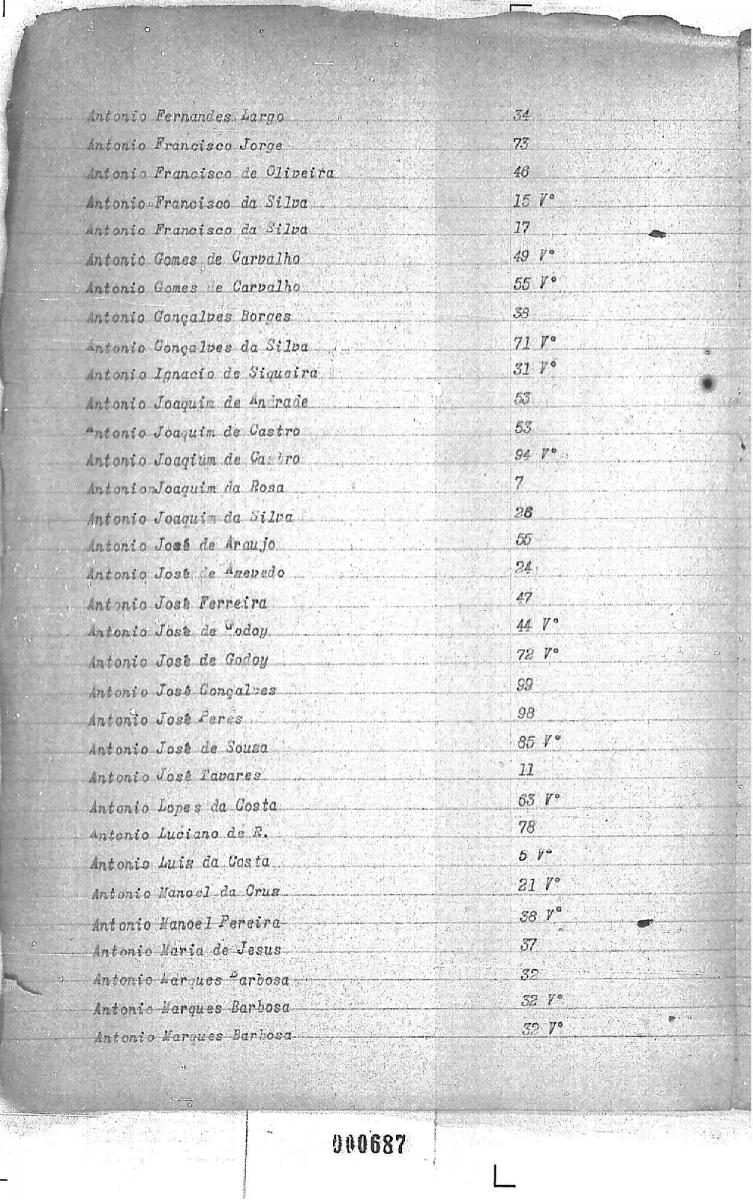 Antonio Fernandes Largo 34
Antonio Francisco Jorge 73
Antonio Francisco de Oliveira 46
Antonio Francisco da Silva 15 Vº
Antonio Francisco da Silva 17
Antonio Gomes de Carvalho 49 Vº
Antonio Gomes de Carvalho 55 Vº
Antonio Gonçalves Borges 38
Antonio Gonçalves da Silva 71 Vº
Antonio Ignacio de Siqueira 31 Vº
Antonio Joaquim de Andrade 53
Antonio Joaquim de Castro 53
Antonio Joaqium de Castro 94 Vº
Antonio Joaquim da Rosa 7
Antonio Joaquim da Silva 26
Antonio José de Araujo 55
Antonio José de Azevedo 24
Antonio José Ferreira 47
Antonio José de Godoy 44 Vº
Antonio José de Godoy 72 Vº
Antonio José Gonçalves 99
Antonio José Peres 98
Antonio José de Souza 85 Vº
Antonio José Tavares 11
Antonio Lopes da Costa 63 Vº
Antonio Luciano de R. 78
Antonio Luiz da Costa 5 Vº
Antonio Manoel da Cruz 21 Vº
Antonio Manoel Pereira 38 Vº
Antonio Maria de Jesus 37
Antonio Marques Barbosa 32
Antonio Marques Barbosa 32 Vº
Antonio Marques Barbosa 32 Vº
000687